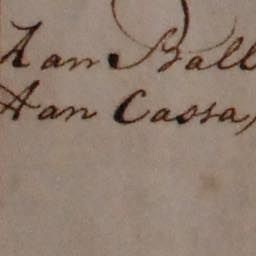 Aan Ball
Aan Cassa,